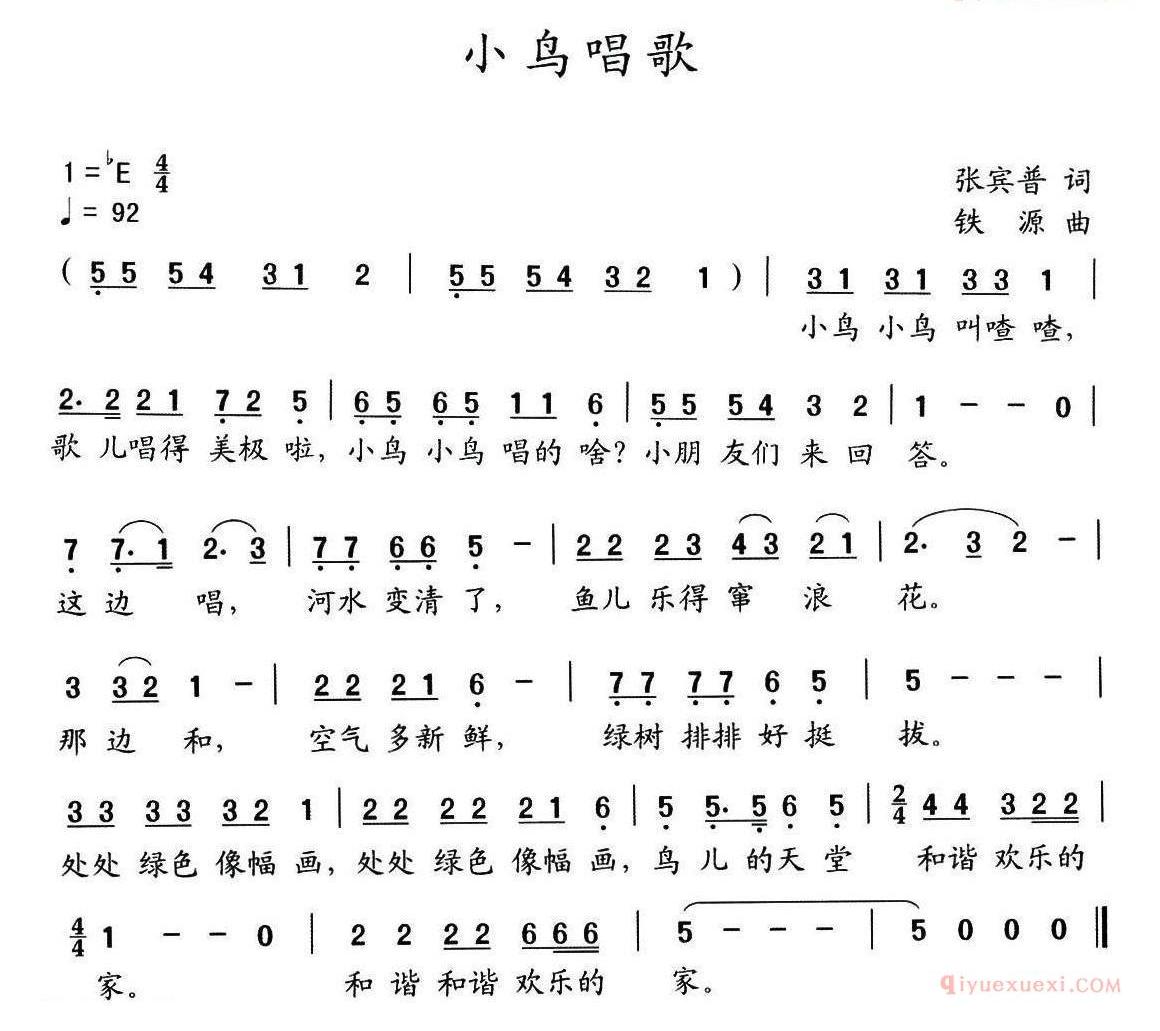 小鸟唱歌
1=♭E 4/4
♩= 92
张宾普 词
铁 源 曲
( 5̣5 54 31 2 | 5̣5 54 32 1 ) | 31 31 33 1 |
小鸟 小鸟 叫喳 喳，
2· 2 21 7̣2 5̣ | 6̣5̣ 6̣5̣ 11 6̣ | 5̣5 54 3 2 | 1 - - 0 |
歌 儿唱得 美极 啦，小鸟 小鸟 唱的 啥？小朋 友们 来 回 答。
7̣ 7̣· 1 2· 3 | 7̣7̣ 6̣6̣ 5̣ - | 22 23 43 21 | 2· 3 2 - |
这 边 唱， 河水 变清 了， 鱼儿 乐得 窜 浪 花。
3 32 1 - | 22 21 6̣ - | 7̣7̣ 7̣7̣ 6̣ 5̣ | 5 - - - |
那 边 和， 空气 多新 鲜， 绿树 排排 好 挺 拔。
33 33 32 1 | 22 22 21 6̣ | 5̣ 5̣· 5̣ 6̣ 5̣ | 2/4 44 322 |
处处 绿色 像幅 画，处处 绿色 像幅 画，鸟 儿 的天 堂 和谐 欢乐的
4/4 1 - - 0 | 2 2 22 666 | 5 - - - | 5 0 0 0 ‖
家。 和 谐 和谐 欢乐的 家。
qiyuexuexi.COM